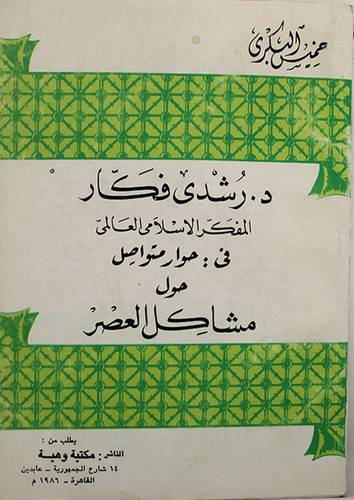 خميس البكرى
د. رشدى فكار
المفكر الإسلامى العالمى
فى : حوار متواصل
حول
مشاكل العصر
يطلب من :
الناشر : مكتبة وهبة
١٤ شارع الجمهورية - عابدين
القاهرة - ١٩٨٦ م